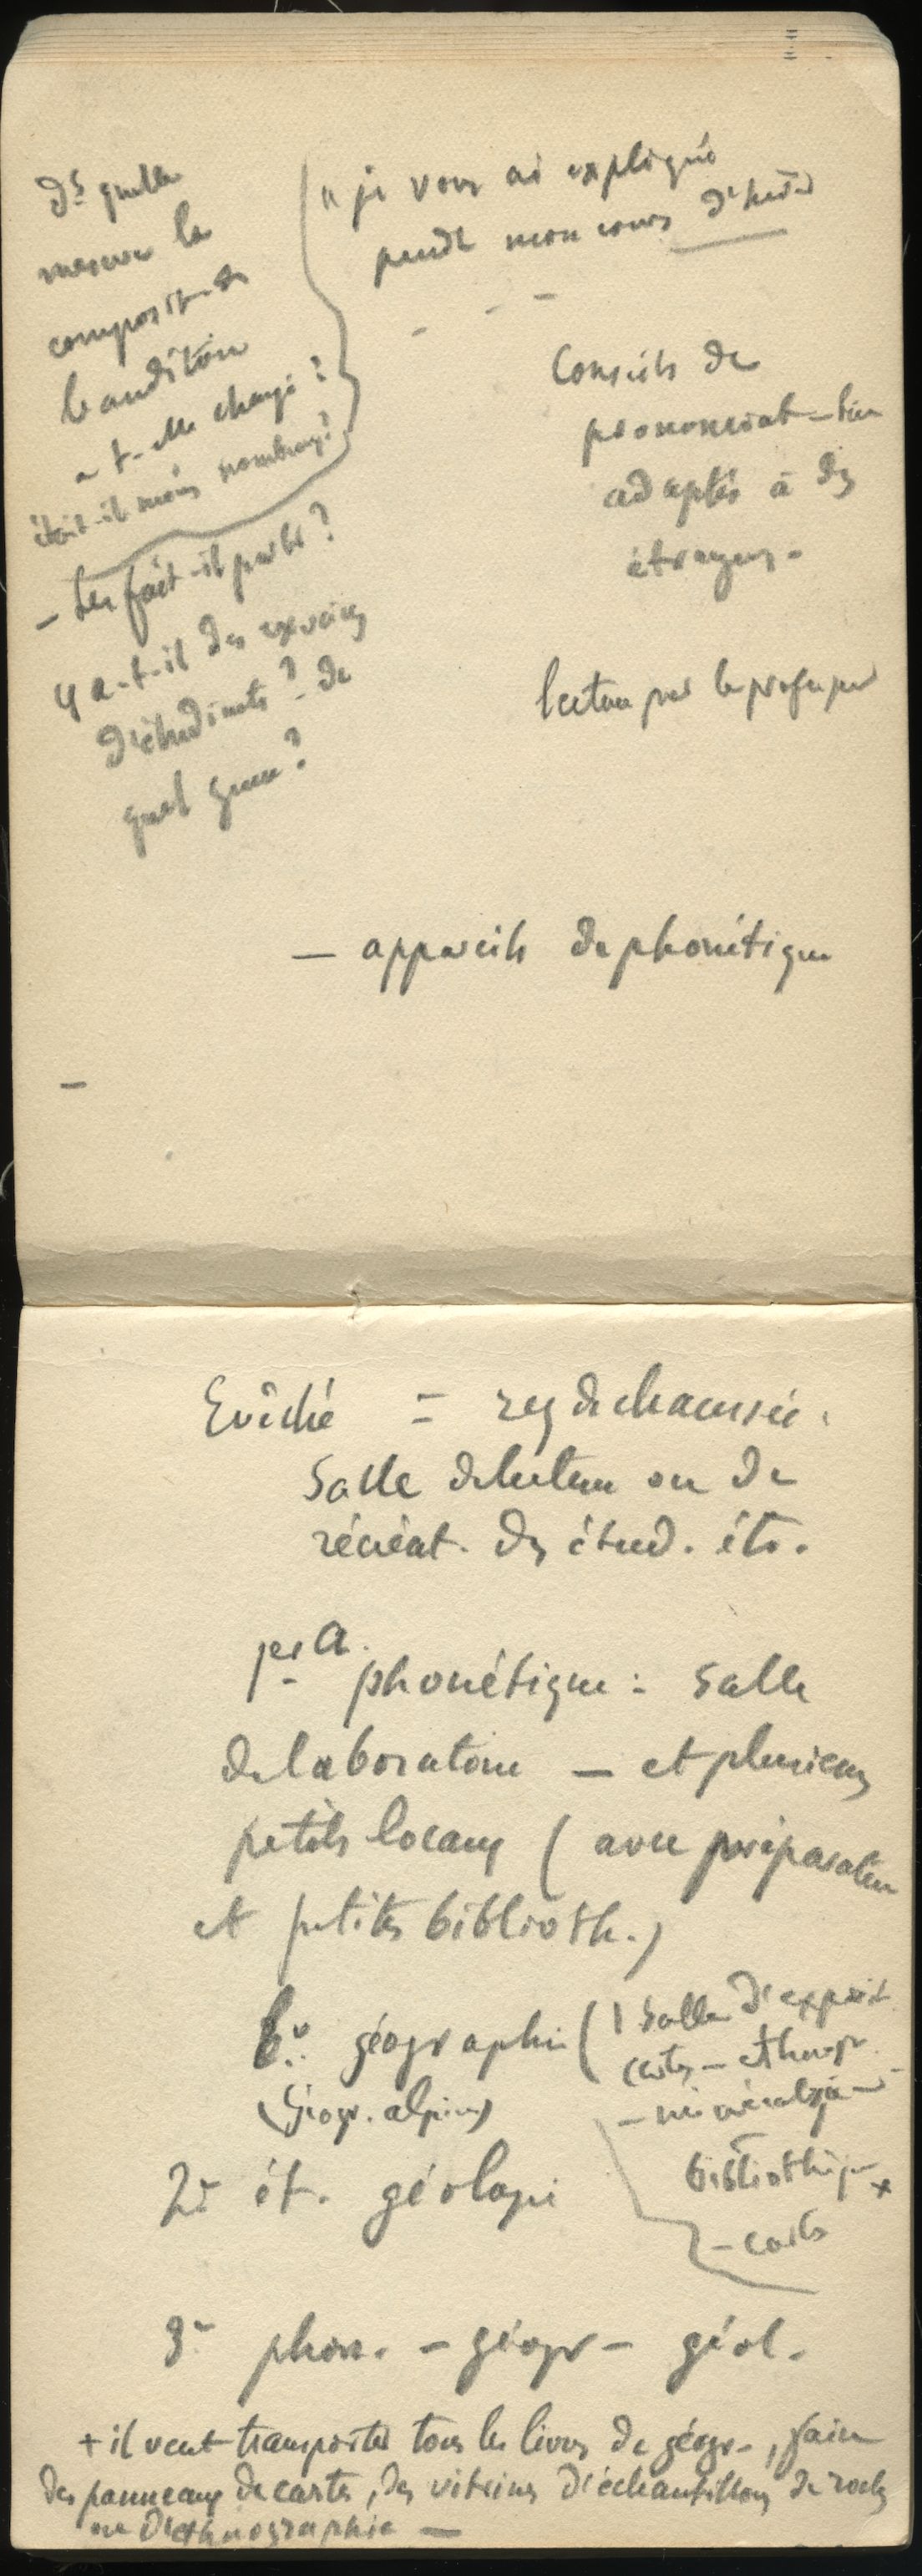 ds quelle
mesure la
composit- de
l'auditoire
a-t-elle changé ?
était-il moins nombreux ?
- Les fait-il parler ?
Y a-t-il des exercices
d'étudiants ? de
quel genre ?
"je vous ai expliqué
pendt mon cours d'hiver
- - -
Conseils de
prononciat-
adaptés à des
étrangers -
lecture par le professeur
- appareils de phonétique
-
Evêché = rez de chaussée.
Salle de lecture ou de
récréat. des étud. étr.
per a.
phonétique : salle
de laboratoire - et plusieurs
petits locaux (avec préparateur
et petites biblioth.)
b. géographie (1 salle d'exposit.
cartes - ethnogr.
(Géogr. alpine)
- minéralogie -
bibliothèque +
- cartes
2e ét. géologie
3e phon. - géogr - géol.
+ il veut transporter tous les livres de géogr-, faire
des panneaux de cartes, des vitrines d'échantillons de roches
ou d'ethnographie -